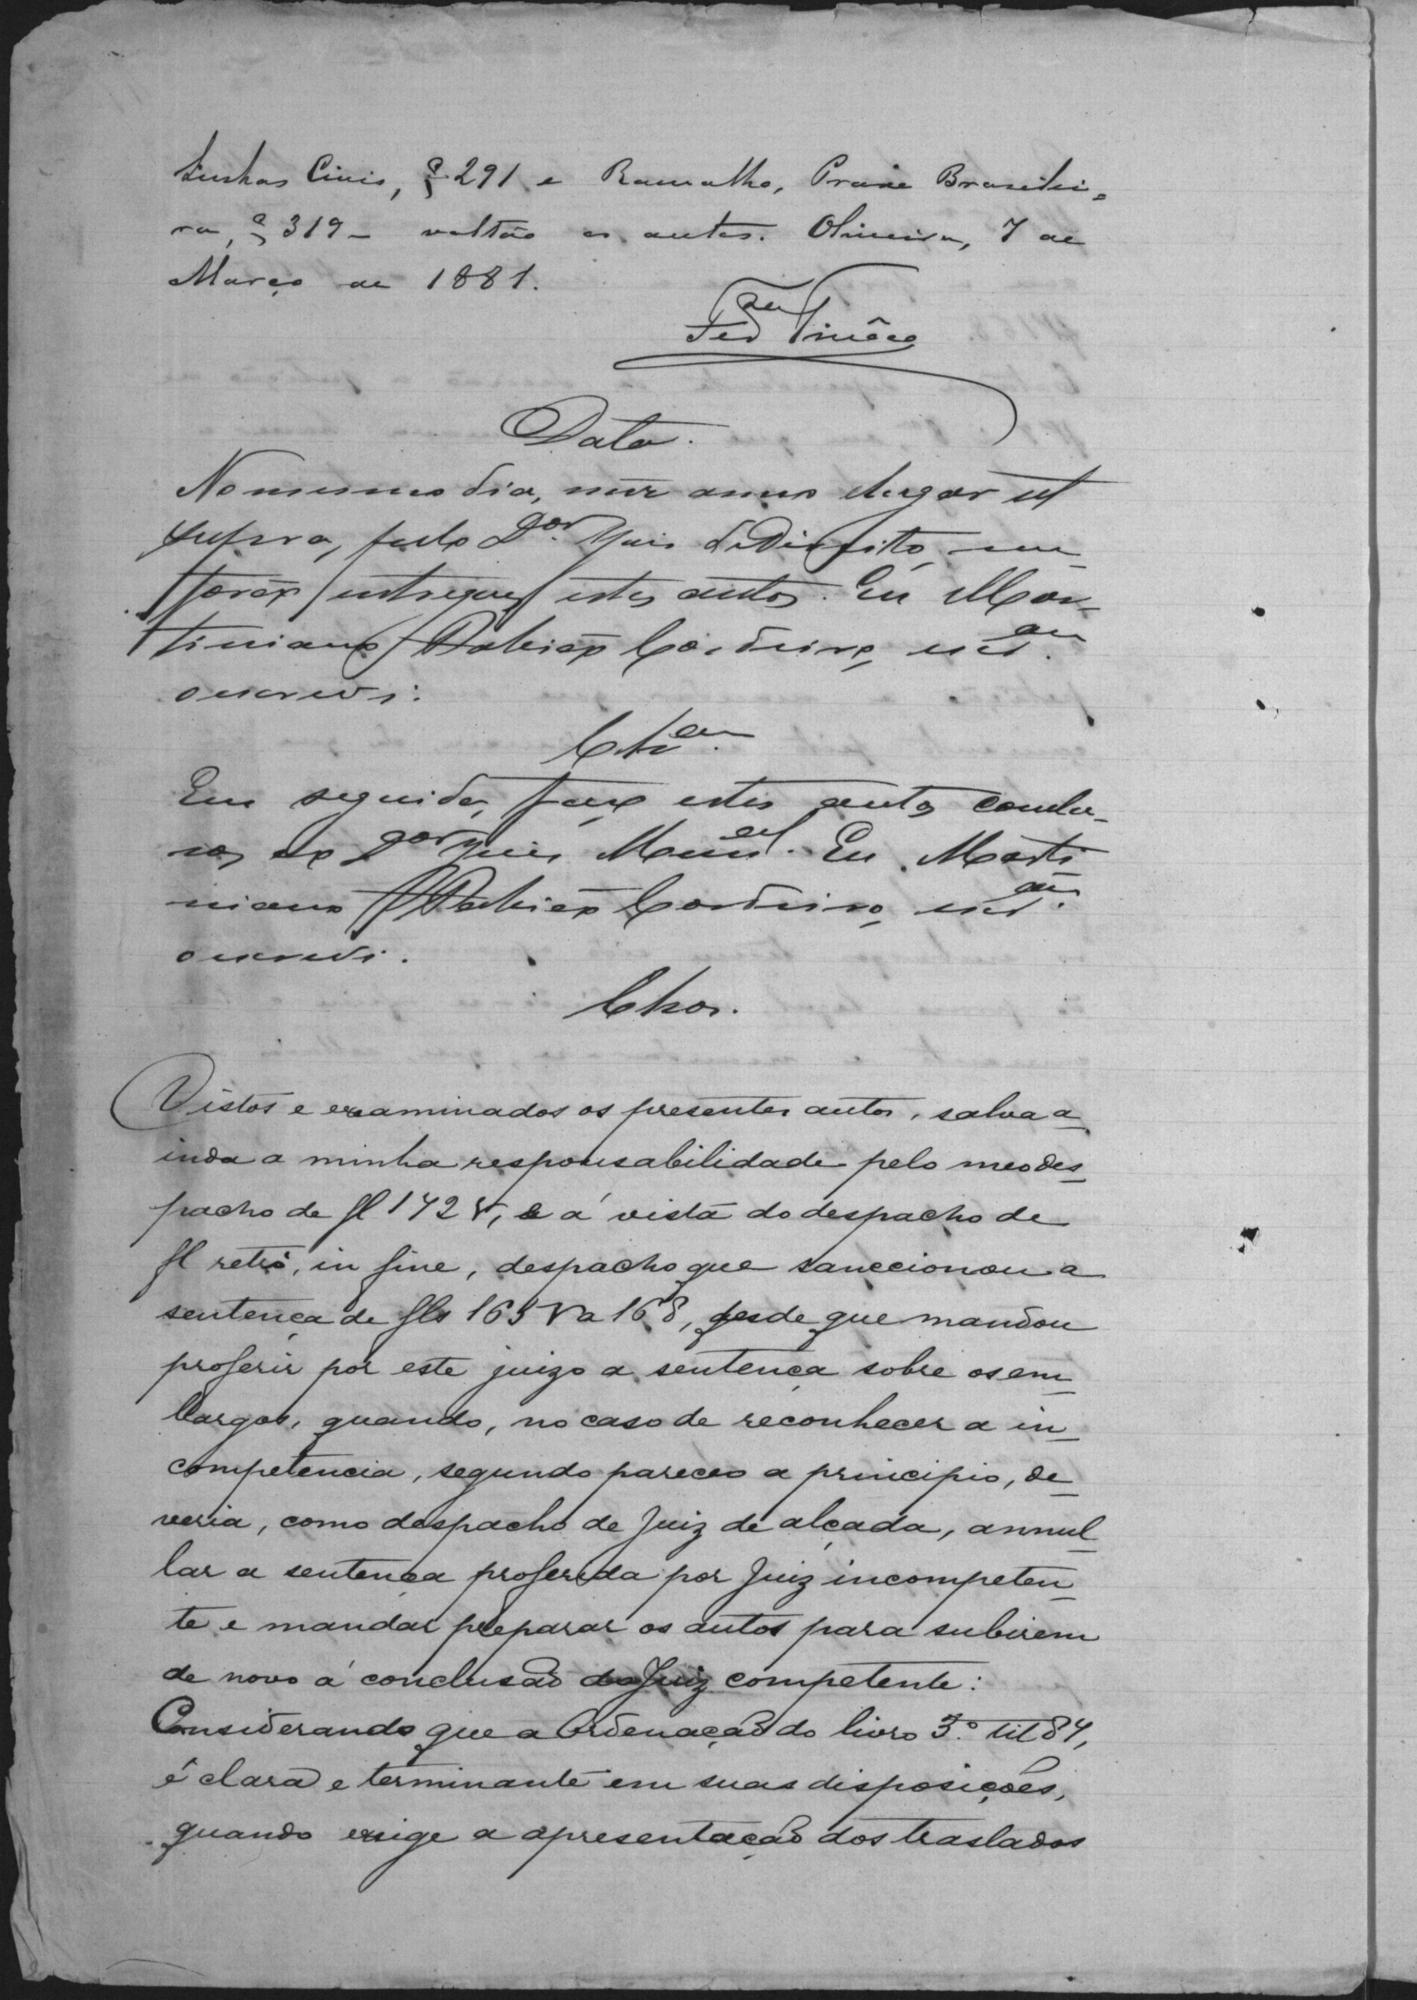 Linhas Civis, § 291 e Ramalho, Praxe Brasilei-
ra, § 319 - voltão os autos. Oliveira, 7 de
Março de 1881.
Data.
No mesmo dia, mez anno e lugar ut
supra, pelo Dor. Juiz de Direito, me
forão entregues estes autos. Eu Mar-
tiniano Cordeiro, escram.
o escrevi.
Clsam.
Em seguida, faço estes autos conclu-
sos ao Dor Juiz Munal. Eu Marti
niano Cordeiro, escram.
o escrevi.
Clsos.
Vistos e examinados os presentes autos, salva a-
inda a minha responsabilidade pelo meo des-
pacho de fl 142 v, e á vista do despacho de
fl retro, in fine, despacho que sanccionou a
sentença de fls 165 v a 168, desde que mandou
proferir por este juizo a sentença sobre os em-
bargos, quando, no caso de reconhecer a in-
competencia, segundo pareceo a principio, de-
veria, como despacho de Juiz de alçada, annul-
lar a sentença proferida por Juiz incompeten-
te e mandar preparar os autos para subirem
de novo á conclusão do Juiz competente:
Considerando que a Ordenação do livro 3º tit 84,
é clara e terminante em suas disposições,
quando exige a apresentação dos traslados